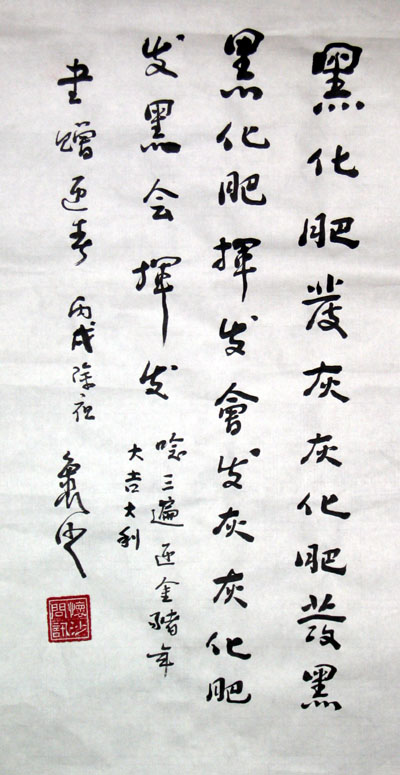 黑化肥發灰灰化肥發黑
黑化肥揮发會发灰灰化肥
发黑会揮发
唸三遍迎金豬年
大吉大利
書贈迎春 丙戌除夜
懷沙
懷沙問訊